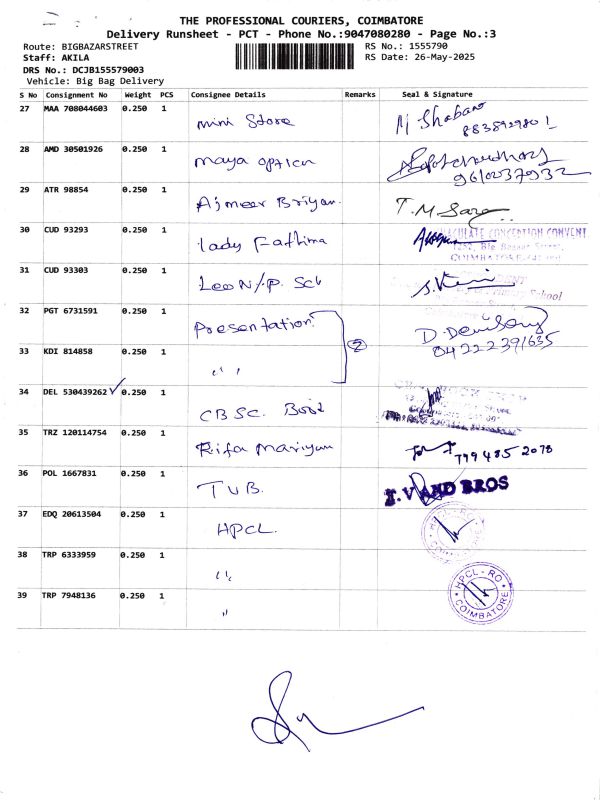 THE PROFESSIONAL COURIERS, COIMBATORE
Delivery Runsheet - PCT - Phone No.:9047080280 - Page No.:3
Route: BIGBAZARSTREET
RS No.: 1555790
Staff: AKILA
RS Date: 26-May-2025
DRS No.: DCJB155579003
Vehicle: Big Bag Delivery
S No Consignment No Weight PCS Consignee Details Remarks Seal & Signature
27 MAA 708044603 0.250 1 Mini Store
28 AMD 30501926 0.250 1 Maya optica 9610237932
29 ATR 98854 0.250 1 Ajmeer Briyan. T.M
30 CUD 93293 0.250 1 lady Fathima CONCEPTION CONVENT
31 CUD 93303 0.250 1 Leo N/P. Sch School
32 PGT 6731591 0.250 1 Presentation 2
04222391635
33 KDI 814858 0.250 1 "
34 DEL 530439262 0.250 1 CBSC.
35 TRZ 120114754 0.250 1 Rifa Mariyam 799485 2078
36 POL 1667831 0.250 1 TVB. AND BROS
37 EDQ 20613504 0.250 1 HPCL.
38 TRP 6333959 0.250 1 "
39 TRP 7948136 0.250 1 " HPCL - RO COIMBATORE